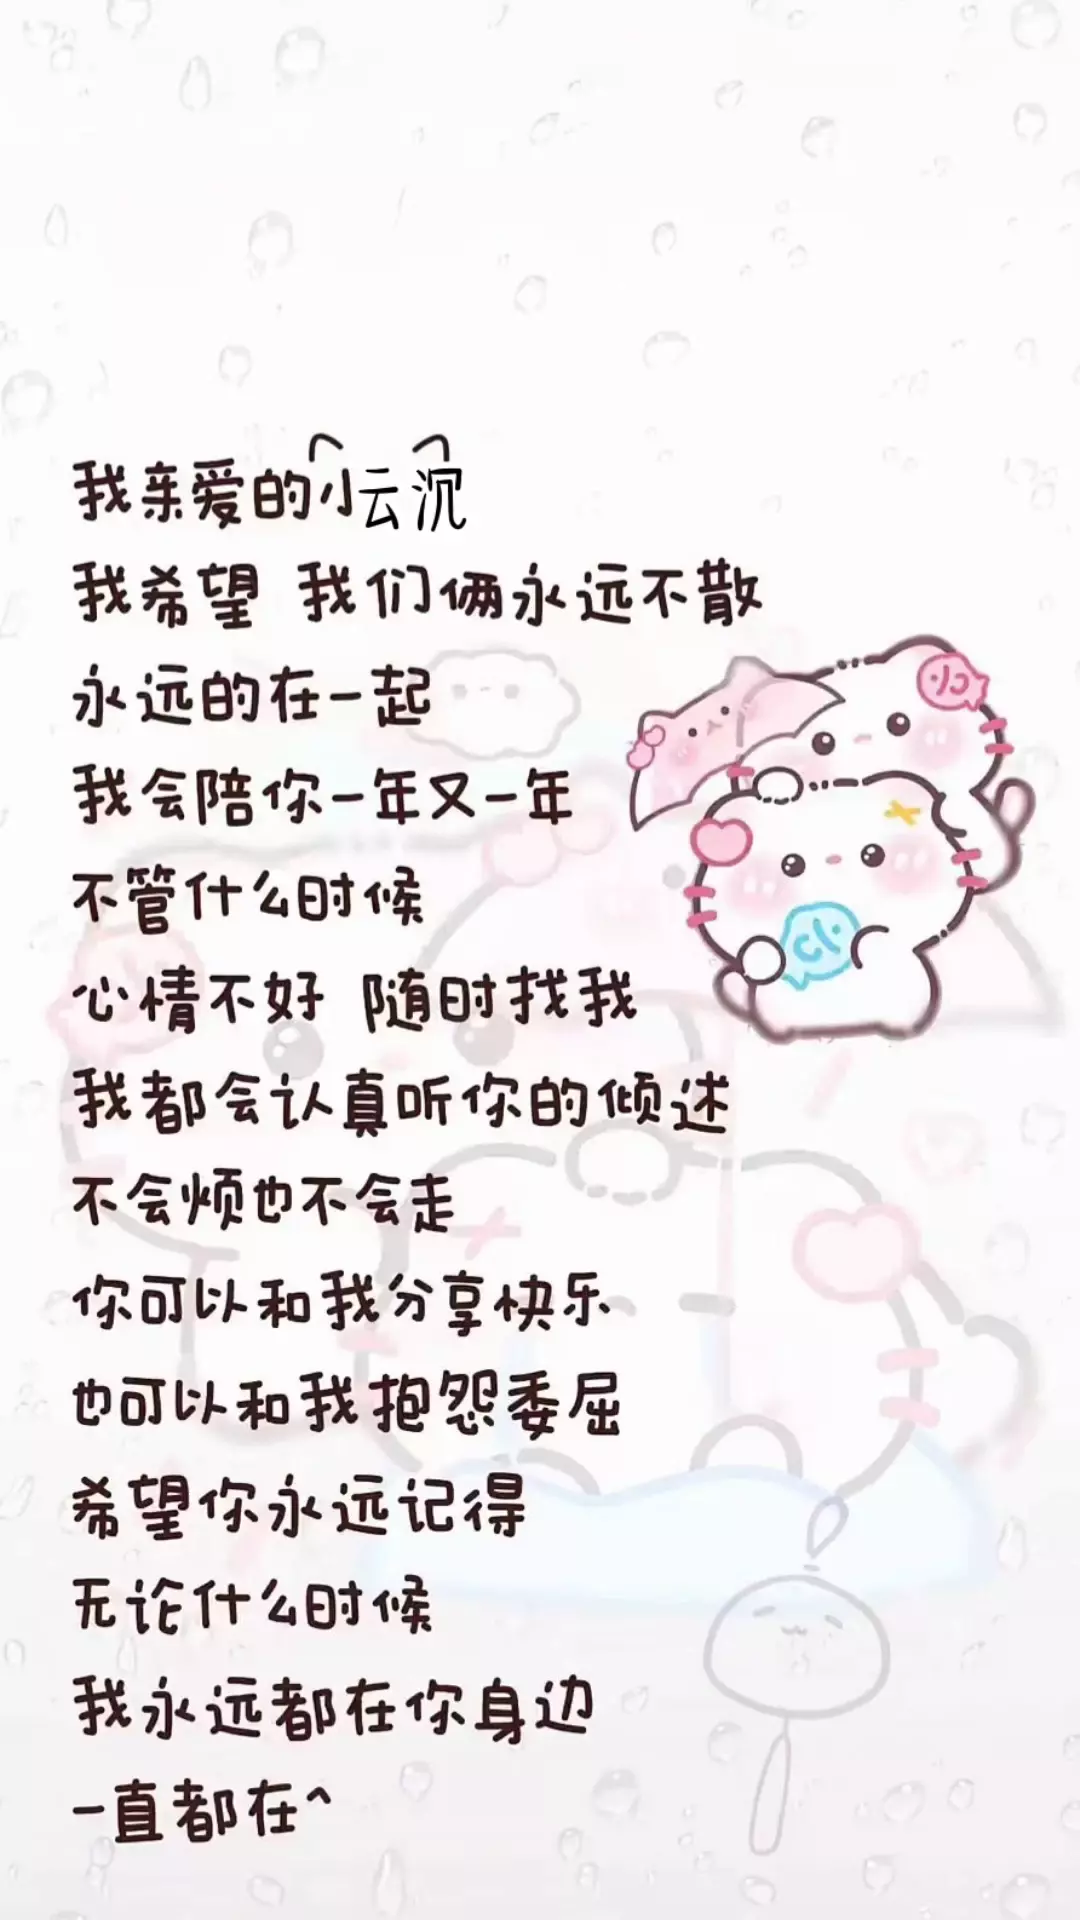 我亲爱的小云沉
我希望 我们俩永远不散
永远的在一起
我会陪你一年又一年
不管什么时候
心情不好 随时找我
我都会认真听你的倾述
不会烦也不会走
你可以和我分享快乐
也可以和我抱怨委屈
希望你永远记得
无论什么时候
我永远都在你身边
一直都在^